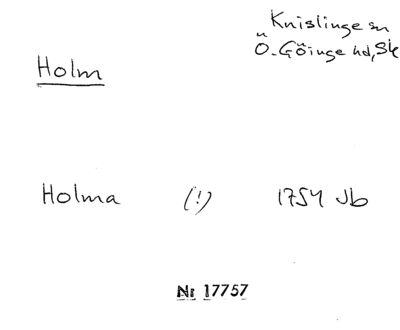 Knislinge sn
Ö. Göinge hd, Sk
Holm
Holma (!) 1754 Jb
Nr 17757